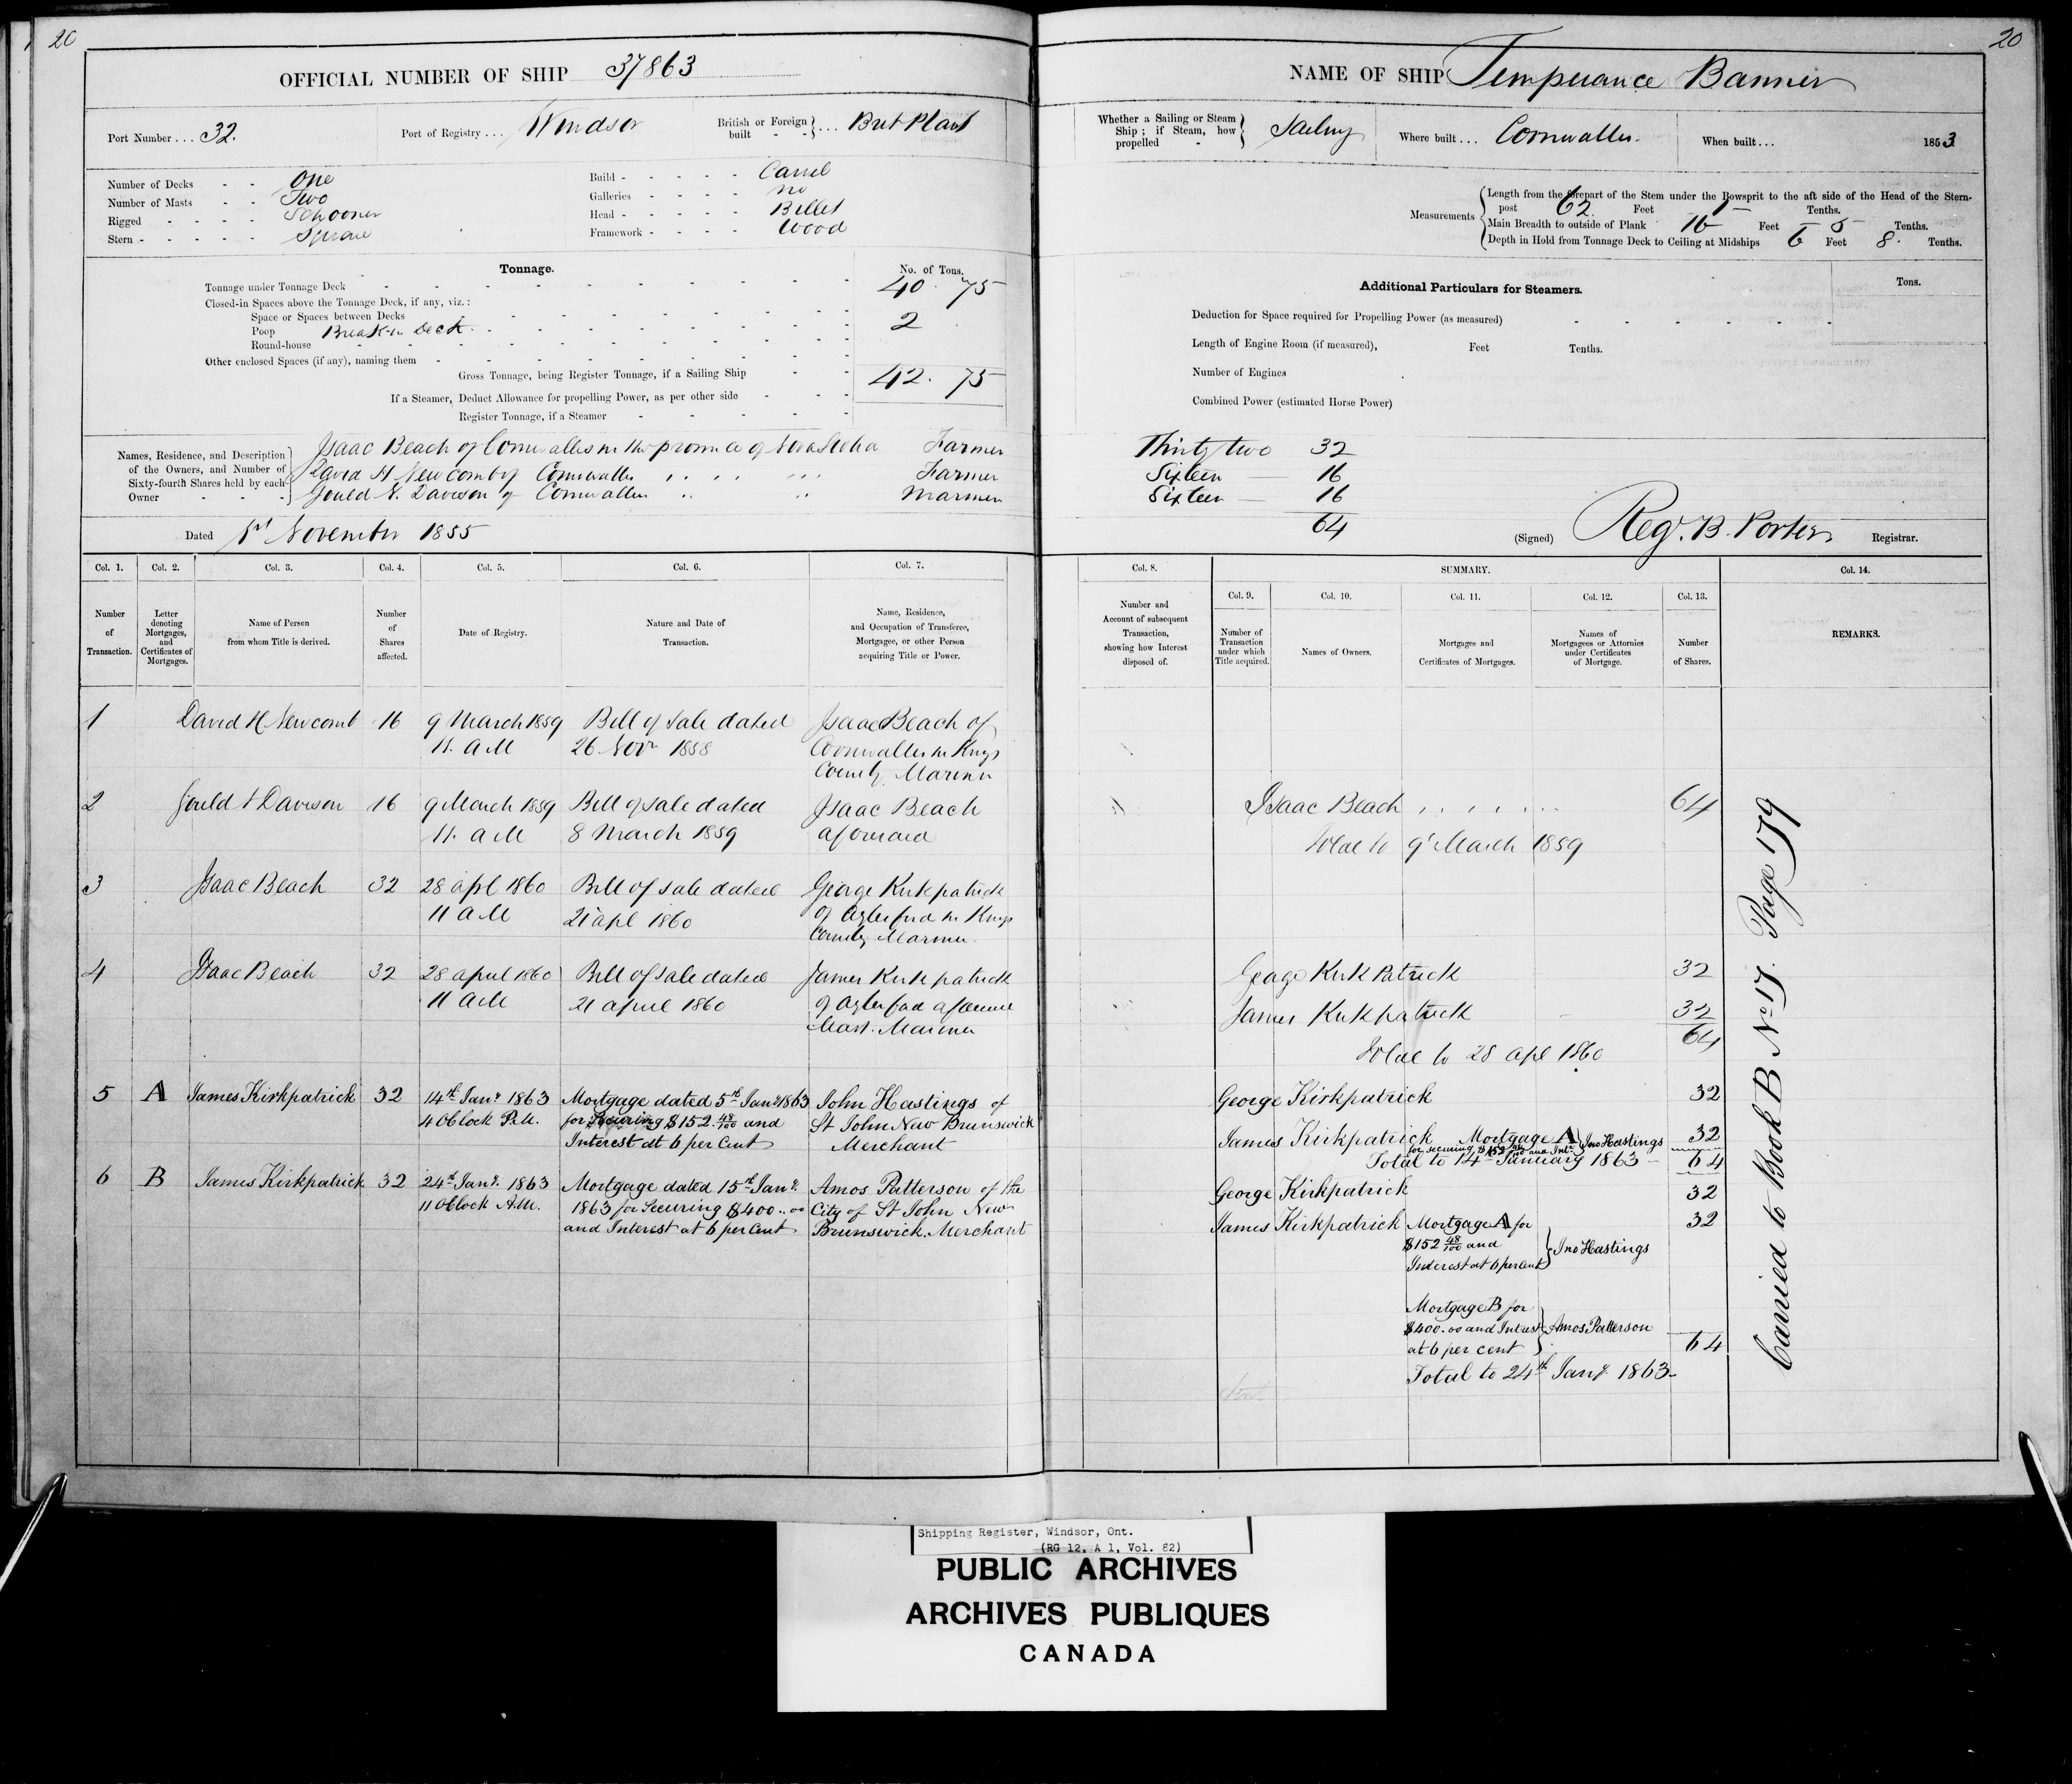 20
OFFICIAL NUMBER OF SHIP 37863
Port Number . . . 32.
Port of Registry . . . Windsor
British or Foreign built - - } . . . Brit Plant
Number of Decks - - One
Number of Masts - - Two
Rigged - - - - Schooner
Stern - - - - - Square
Build - - - - - Carvel
Galleries - - - - no
Head - - - - - Billet
Framework - - - - Wood
Tonnage.
No. of Tons.
Tonnage under Tonnage Deck 40. 75
Closed-in Spaces above the Tonnage Deck, if any, viz.:
Space or Spaces between Decks
Poop Break in Deck 2
Round-house
Other enclosed Spaces (if any), naming them
Gross Tonnage, being Register Tonnage, if a Sailing Ship 42. 75
If a Steamer, Deduct Allowance for propelling Power, as per other side
Register Tonnage, if a Steamer
Names, Residence, and Description of the Owners, and Number of Sixty-fourth Shares held by each Owner
Isaac Beach of Cornwallis in the province of Nova Scotia Farmer
David H Newcomb of Cornwallis " " " Farmer
Gould N. Davison of Cornwallis " " Mariner
Dated 1st November 1855
Col. 1. Col. 2. Col. 3. Col. 4. Col. 5. Col. 6. Col. 7.
Number of Transaction.
Letter denoting Mortgages, and Certificates of Mortgages.
Name of Person from whom Title is derived.
Number of Shares affected.
Date of Registry.
Nature and Date of Transaction.
Name, Residence, and Occupation of Transferee, Mortgagee, or other Person acquiring Title or Power.
1 David H Newcomb 16 9 March 1859 Bill of Sale dated Isaac Beach of
11. AM 26 Novr 1858 Cornwallis in Kings
County Mariner
2 Gould Davison 16 9 March 1859 Bill of Sale dated Isaac Beach
11. AM 8 March 1859 aforesaid
3 Isaac Beach 32 28 apl 1860 Bill of Sale dated George Kirkpatrick
11 AM 21 apl 1860 of Aylesford in Kings
County Mariner
4 Isaac Beach 32 28 april 1860 Bill of Sale dated James Kirkpatrick
11 AM 21 april 1860 of Aylesford
Mast. Mariner
5 A James Kirkpatrick 32 14th Jany 1863 Mortgage dated 5th Jany 1863 John Hastings of
4 OClock P.M. for Securing $152 48/100 and St John New Brunswick
Interest at 6 per Cent Merchant
6 B James Kirkpatrick 32 24th Jany. 1863 Mortgage dated 15th Jany. Amos Patterson of the
11 OClock A.M. 1863 for Securing $400..00 City of St John New
and Interest at 6 per Cent Brunswick. Merchant
20
NAME OF SHIP Temperance Banner
Whether a Sailing or Steam Ship; if Steam, how propelled - } Sailing
Where built . . . Cornwallis.
When built . . . 1853
Measurements
Length from the forepart of the Stem under the Bowsprit to the aft side of the Head of the Stern-
post 62 Feet 1 Tenths.
Main Breadth to outside of Plank 16 Feet 5 Tenths.
Depth in Hold from Tonnage Deck to Ceiling at Midships 6 Feet 8. Tenths.
Additional Particulars for Steamers.
Tons.
Deduction for Space required for Propelling Power (as measured)
Length of Engine Room (if measured), Feet Tenths.
Number of Engines
Combined Power (estimated Horse Power)
Thirty two 32
Sixteen 16
Sixteen 16
64
(Signed) Reg. B. Porter Registrar.
Col. 8. SUMMARY. Col. 14.
Col. 9. Col. 10. Col. 11. Col. 12. Col. 13.
Number and Account of subsequent Transaction, showing how Interest disposed of.
Number of Transaction under which Title acquired.
Names of Owners.
Mortgages and Certificates of Mortgages.
Names of Mortgagees or Attornies under Certificates of Mortgage.
Number of Shares.
REMARKS.
Isaac Beach 64
Total to 9 March 1859
George Kirk Patrick 32
James Kirkpatrick 32
64
Total to 28 apl 1860
George Kirkpatrick 32
James Kirkpatrick Mortgage A } Jno Hastings 32
for securing $152 48/100 and Int.
Total to 14 January 1863 64
George Kirkpatrick 32
James Kirkpatrick Mortgage A for 32
$152 48/100 and
Interest at 6 per Cent } Jno Hastings
Mortgage B for
$400.00 and Intrest } Amos Patterson
at 6 per cent 64
Total to 24th Jany. 1863
Carried to Book B No 17. Page 179
Shipping Register, Windsor, Ont.
(RG 12, A 1, Vol. 82)
PUBLIC ARCHIVES
ARCHIVES PUBLIQUES
CANADA